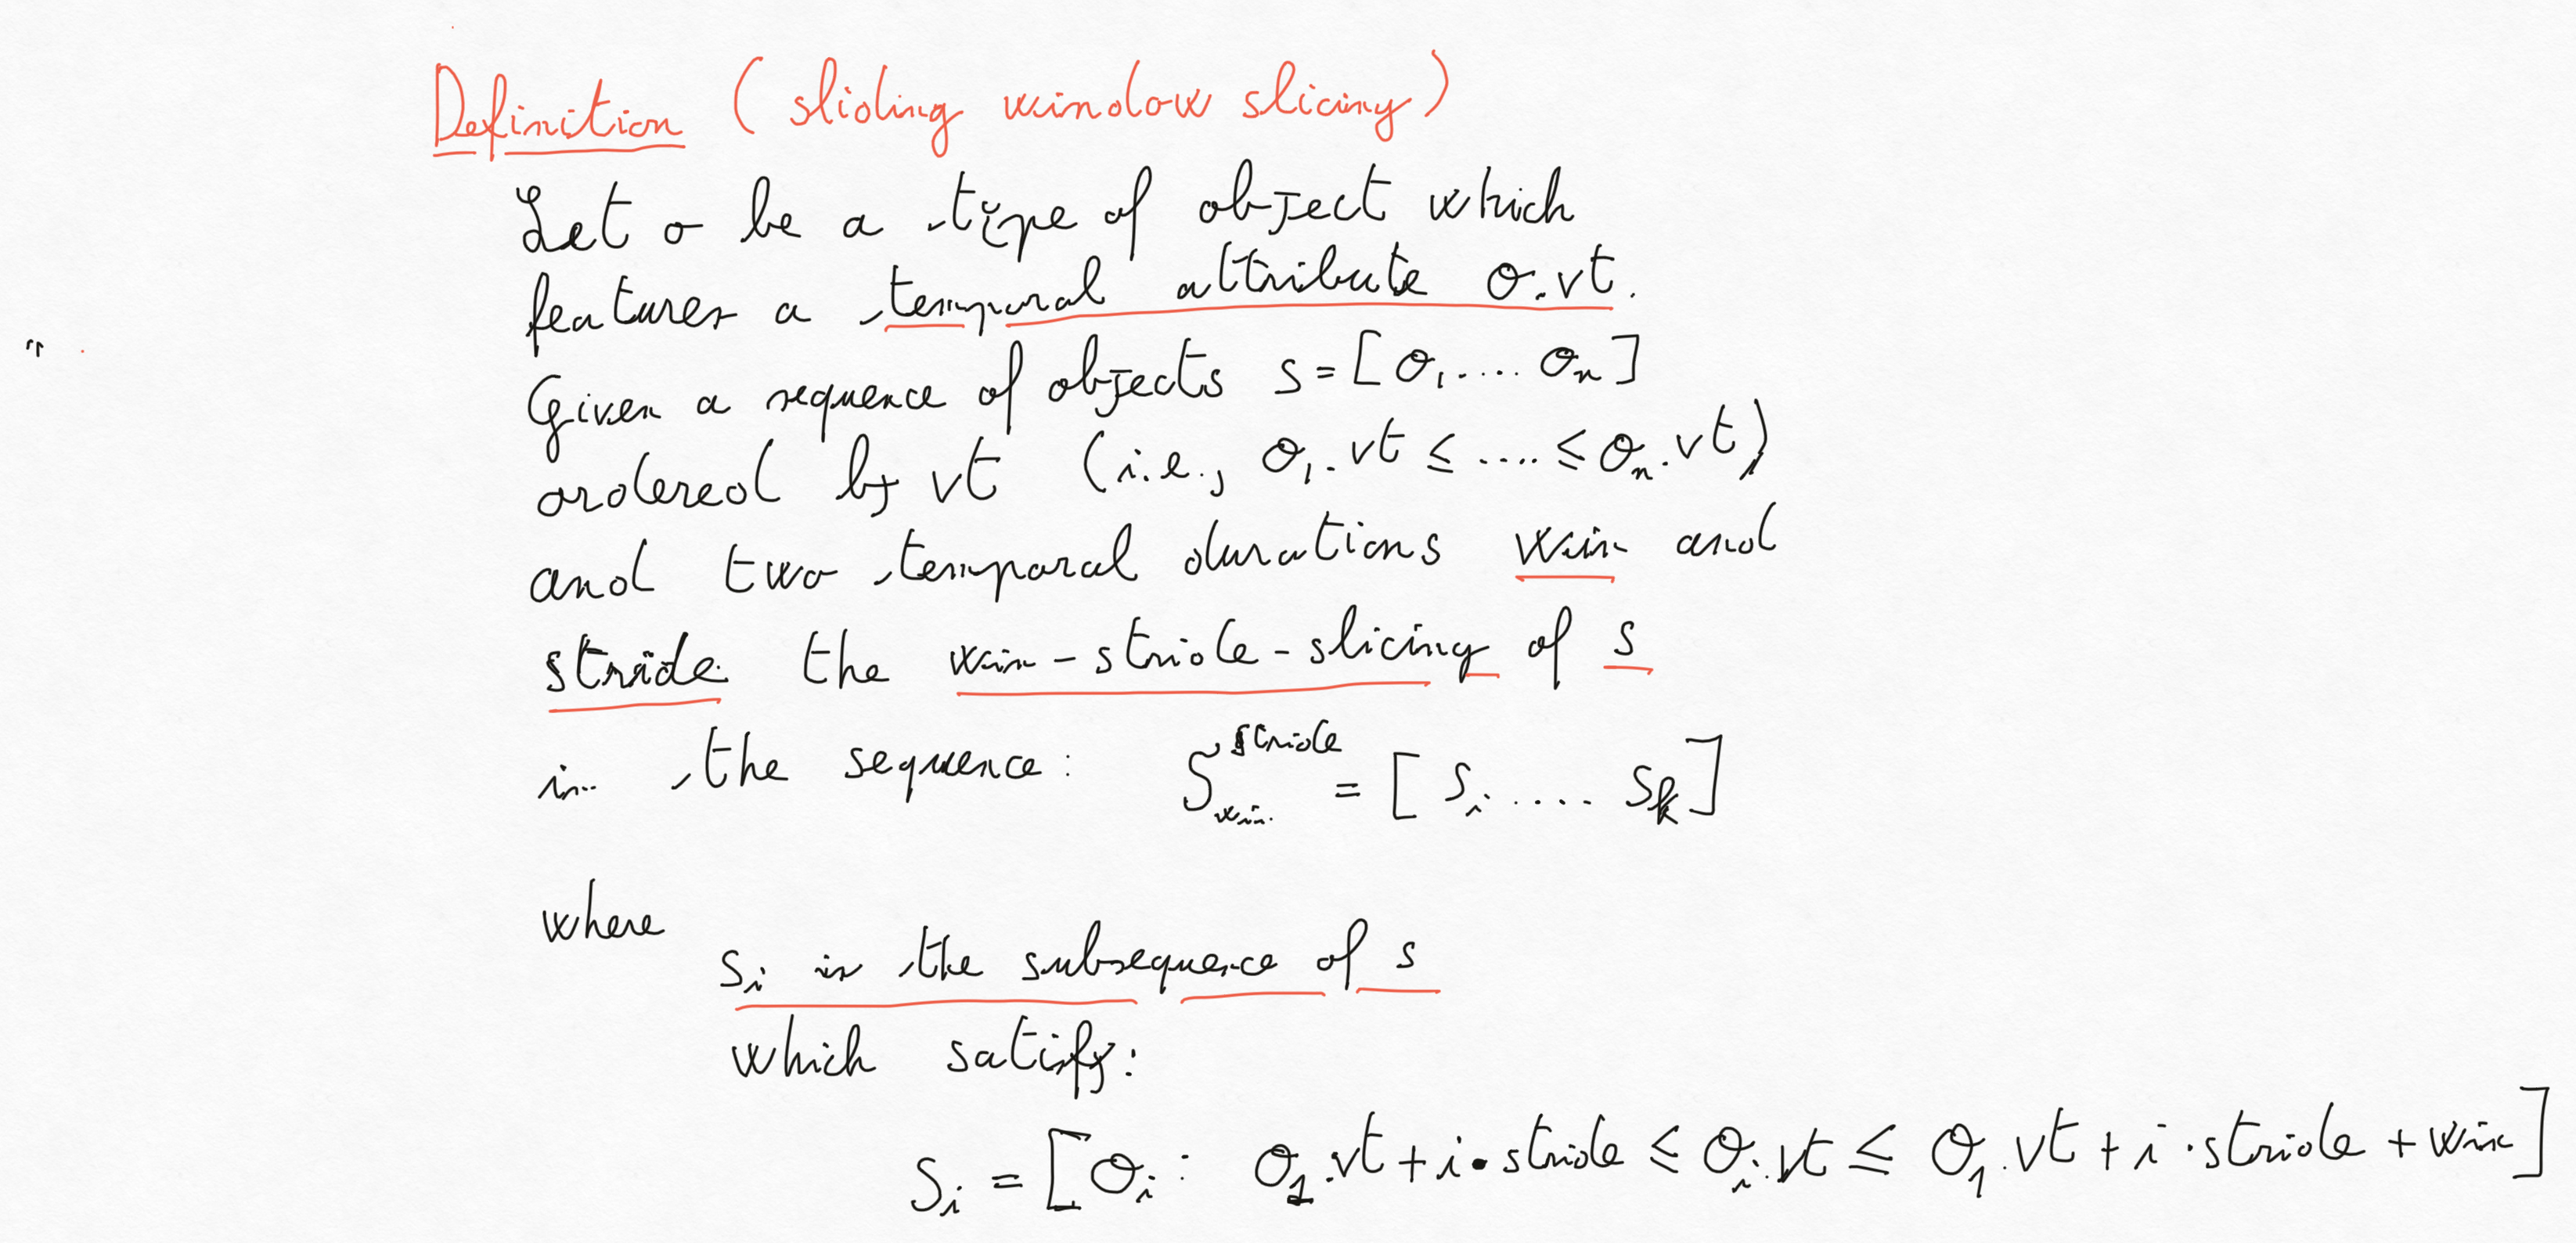 Definition (sliding window slicing)
Let o be a type of object which
features a temporal attribute o.vt.
Given a sequence of objects s = [o₁.... oₙ]
ordered by vt (i.e., o₁.vt ≤ .... ≤ oₙ.vt)
and two temporal durations win and
stride the win-stride-slicing of s
in the sequence: S_win^stride = [ sᵢ .... sₖ]
where
sᵢ is the subsequence of s
which satify:
Sᵢ = [oᵢ: o₁.vt + i • stride ≤ oᵢ.vt ≤ o₁.vt + i · stride + win]